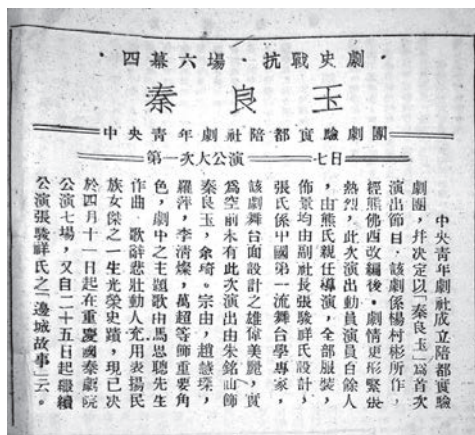 ·四幕六場·抗戰史劇·
秦良玉
中央青年劇社陪都實驗劇團
第一次大公演——七日
中央青年劇社成立陪都實驗
劇團，并决定以「秦良玉」爲首次
演出節目，該劇係楊村彬所作，
經熊佛西改編後，劇情更形緊張
熱烈，此次演出動員演員百餘人
，由熊氏親任導演，全部服裝，
佈景均由副社長張駿祥氏設計，
張氏係中國第一流舞台學專家，
該劇舞台面設計之雄偉美麗，實
爲空前未有此次演出由朱銘仙飾
秦良玉，余琦。宗由，趙越琛，
羅萍，李清燦，萬超等飾重要角
色，劇中之主題歌由馬思聰先生
作曲，歌辭悲壯動人充用表揚民
族女傑之一生光榮史蹟，現已決
於四月十一日起在重慶國泰劇院
公演七場，又自二十五日起繼續
公演張駿祥氏之「邊城故事」云。